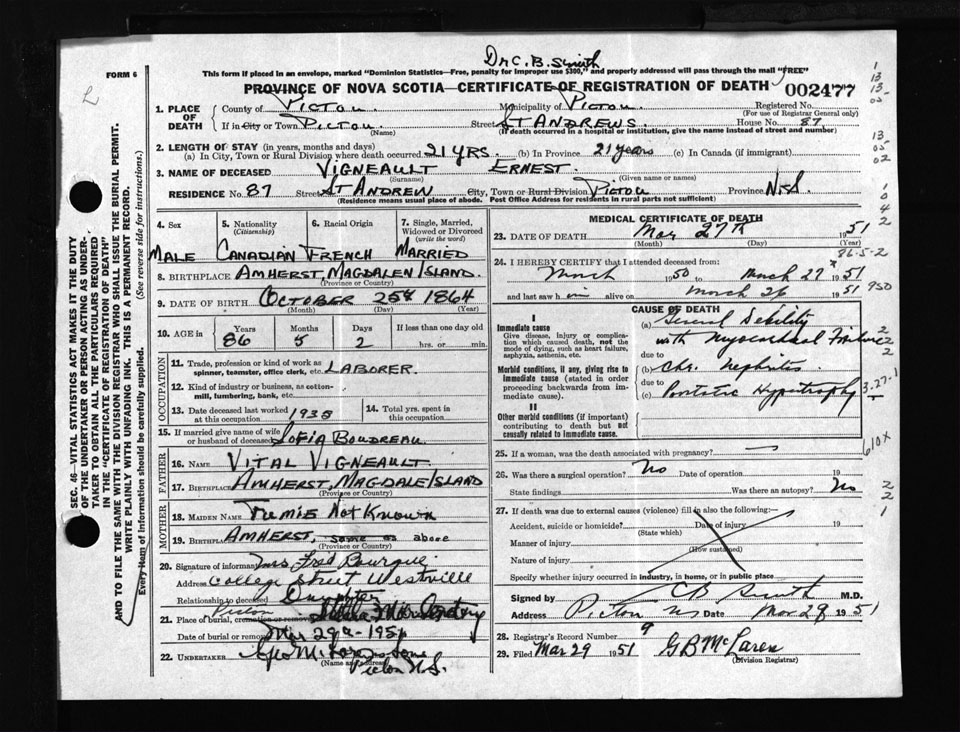 Dr C. B. Smith
FORM 6
This form if placed in an envelope, marked "Dominion Statistics—Free, penalty for improper use $300," and properly addressed will pass through the mail "FREE"
PROVINCE OF NOVA SCOTIA—CERTIFICATE OF REGISTRATION OF DEATH 002477
1. PLACE OF DEATH
County of PICTOU. Municipality of PICTOU. Registered No.
(For use of Registrar General only)
If in City or Town PICTOU Street ST ANDREWS. House No. 87.
(Name) (If death occurred in a hospital or institution, give the name instead of street and number)
2. LENGTH OF STAY (in years, months and days)
(a) In City, Town or Rural Division where death occurred 21 YRS. (b) In Province 21 years (c) In Canada (if immigrant)
3. NAME OF DECEASED VIGNEAULT ERNEST.
(Surname) (Given name or names)
RESIDENCE No. 87 Street ST ANDREW City, Town or Rural Division PICTOU Province N.S.
(Residence means usual place of abode. Post Office Address for residents in rural parts not sufficient)
4. Sex 5. Nationality (Citizenship) 6. Racial Origin 7. Single, Married, Widowed or Divorced (write the word)
MALE CANADIAN FRENCH MARRIED
8. BIRTHPLACE AMHERST, MAGDALEN ISLAND.
(Province or Country)
9. DATE OF BIRTH OCTOBER 25th 1864
(Month) (Day) (Year)
10. AGE in Years Months Days If less than one day old
86 5 2 hrs. or min.
OCCUPATION
11. Trade, profession or kind of work as spinner, teamster, office clerk, etc. LABORER.
12. Kind of industry or business, as cotton-mill, lumbering, bank, etc.
13. Date deceased last worked at this occupation 1938
14. Total yrs. spent in this occupation
15. If married give name of wife or husband of deceased SOFIA BOUDREAU.
FATHER
16. NAME VITAL VIGNEAULT.
17. BIRTHPLACE AMHERST, MAGDALE ISLAND
(Province or Country)
MOTHER
18. MAIDEN NAME Not Known
19. BIRTHPLACE AMHERST, same as above
(Province or Country)
20. Signature of informant Mrs Fred Bourque
Address College Street Westville
Relationship to deceased Daughter
21. Place of burial, cremation or removal Pictou
Date of burial or removal Mar 29th - 1951
22. UNDERTAKER
(Name and address)
Pictou N.S.
MEDICAL CERTIFICATE OF DEATH
23. DATE OF DEATH Mar 27th 1951
(Month) (Day) (Year)
24. I HEREBY CERTIFY that I attended deceased from:
March 1950 to March 27 1951
and last saw him alive on March 26 1951
CAUSE OF DEATH
I
Immediate cause
Give disease, injury or complication which caused death, not the mode of dying, such as heart failure, asphyxia, asthenia, etc.
(a) General Debility
with Myocardial
due to
Morbid conditions, if any, giving rise to immediate cause (stated in order proceeding backwards from immediate cause).
(b) Chr. Nephritis
due to
(c) Prostatic Hypertrophy
II
Other morbid conditions (if important) contributing to death but not causally related to immediate cause.
25. If a woman, was the death associated with pregnancy?
26. Was there a surgical operation? No Date of operation 19
State findings Was there an autopsy? No
27. If death was due to external causes (violence) fill in also the following:
Accident, suicide or homicide? Date of injury 19
(State which)
Manner of injury
(How sustained)
Nature of injury
Specify whether injury occurred in industry, in home, or in public place
Signed by C B Smith M.D.
Address Pictou NS Date Mar 29 1951
28. Registrar's Record Number 9
29. Filed Mar 29 1951 G B McLaren
(Division Registrar)
SEC. 46—VITAL STATISTICS ACT MAKES IT THE DUTY
OF THE UNDERTAKER OR PERSON ACTING AS UNDER-
TAKER TO OBTAIN ALL THE PARTICULARS REQUIRED
IN THE "CERTIFICATE OF REGISTRATION OF DEATH"
AND TO FILE THE SAME WITH THE DIVISION REGISTRAR WHO SHALL ISSUE THE BURIAL PERMIT.
WRITE PLAINLY WITH UNFADING INK. THIS IS A PERMANENT RECORD.
Every item of information should be carefully supplied. (See reverse side for instructions.)